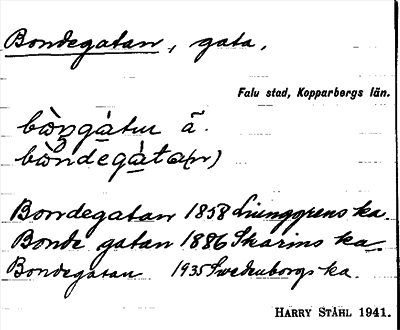 Bondegatan, gata,
Falu stad, Kopparbergs län.
bòngàtur ã.
bòndegàta(n)
Bondegatan 1858 Ljunggrens ka.
Bonde gatan 1886 Skarins ka.
Bondegatan 1935 Swedenborgs ka.
HARRY STÅHL 1941.